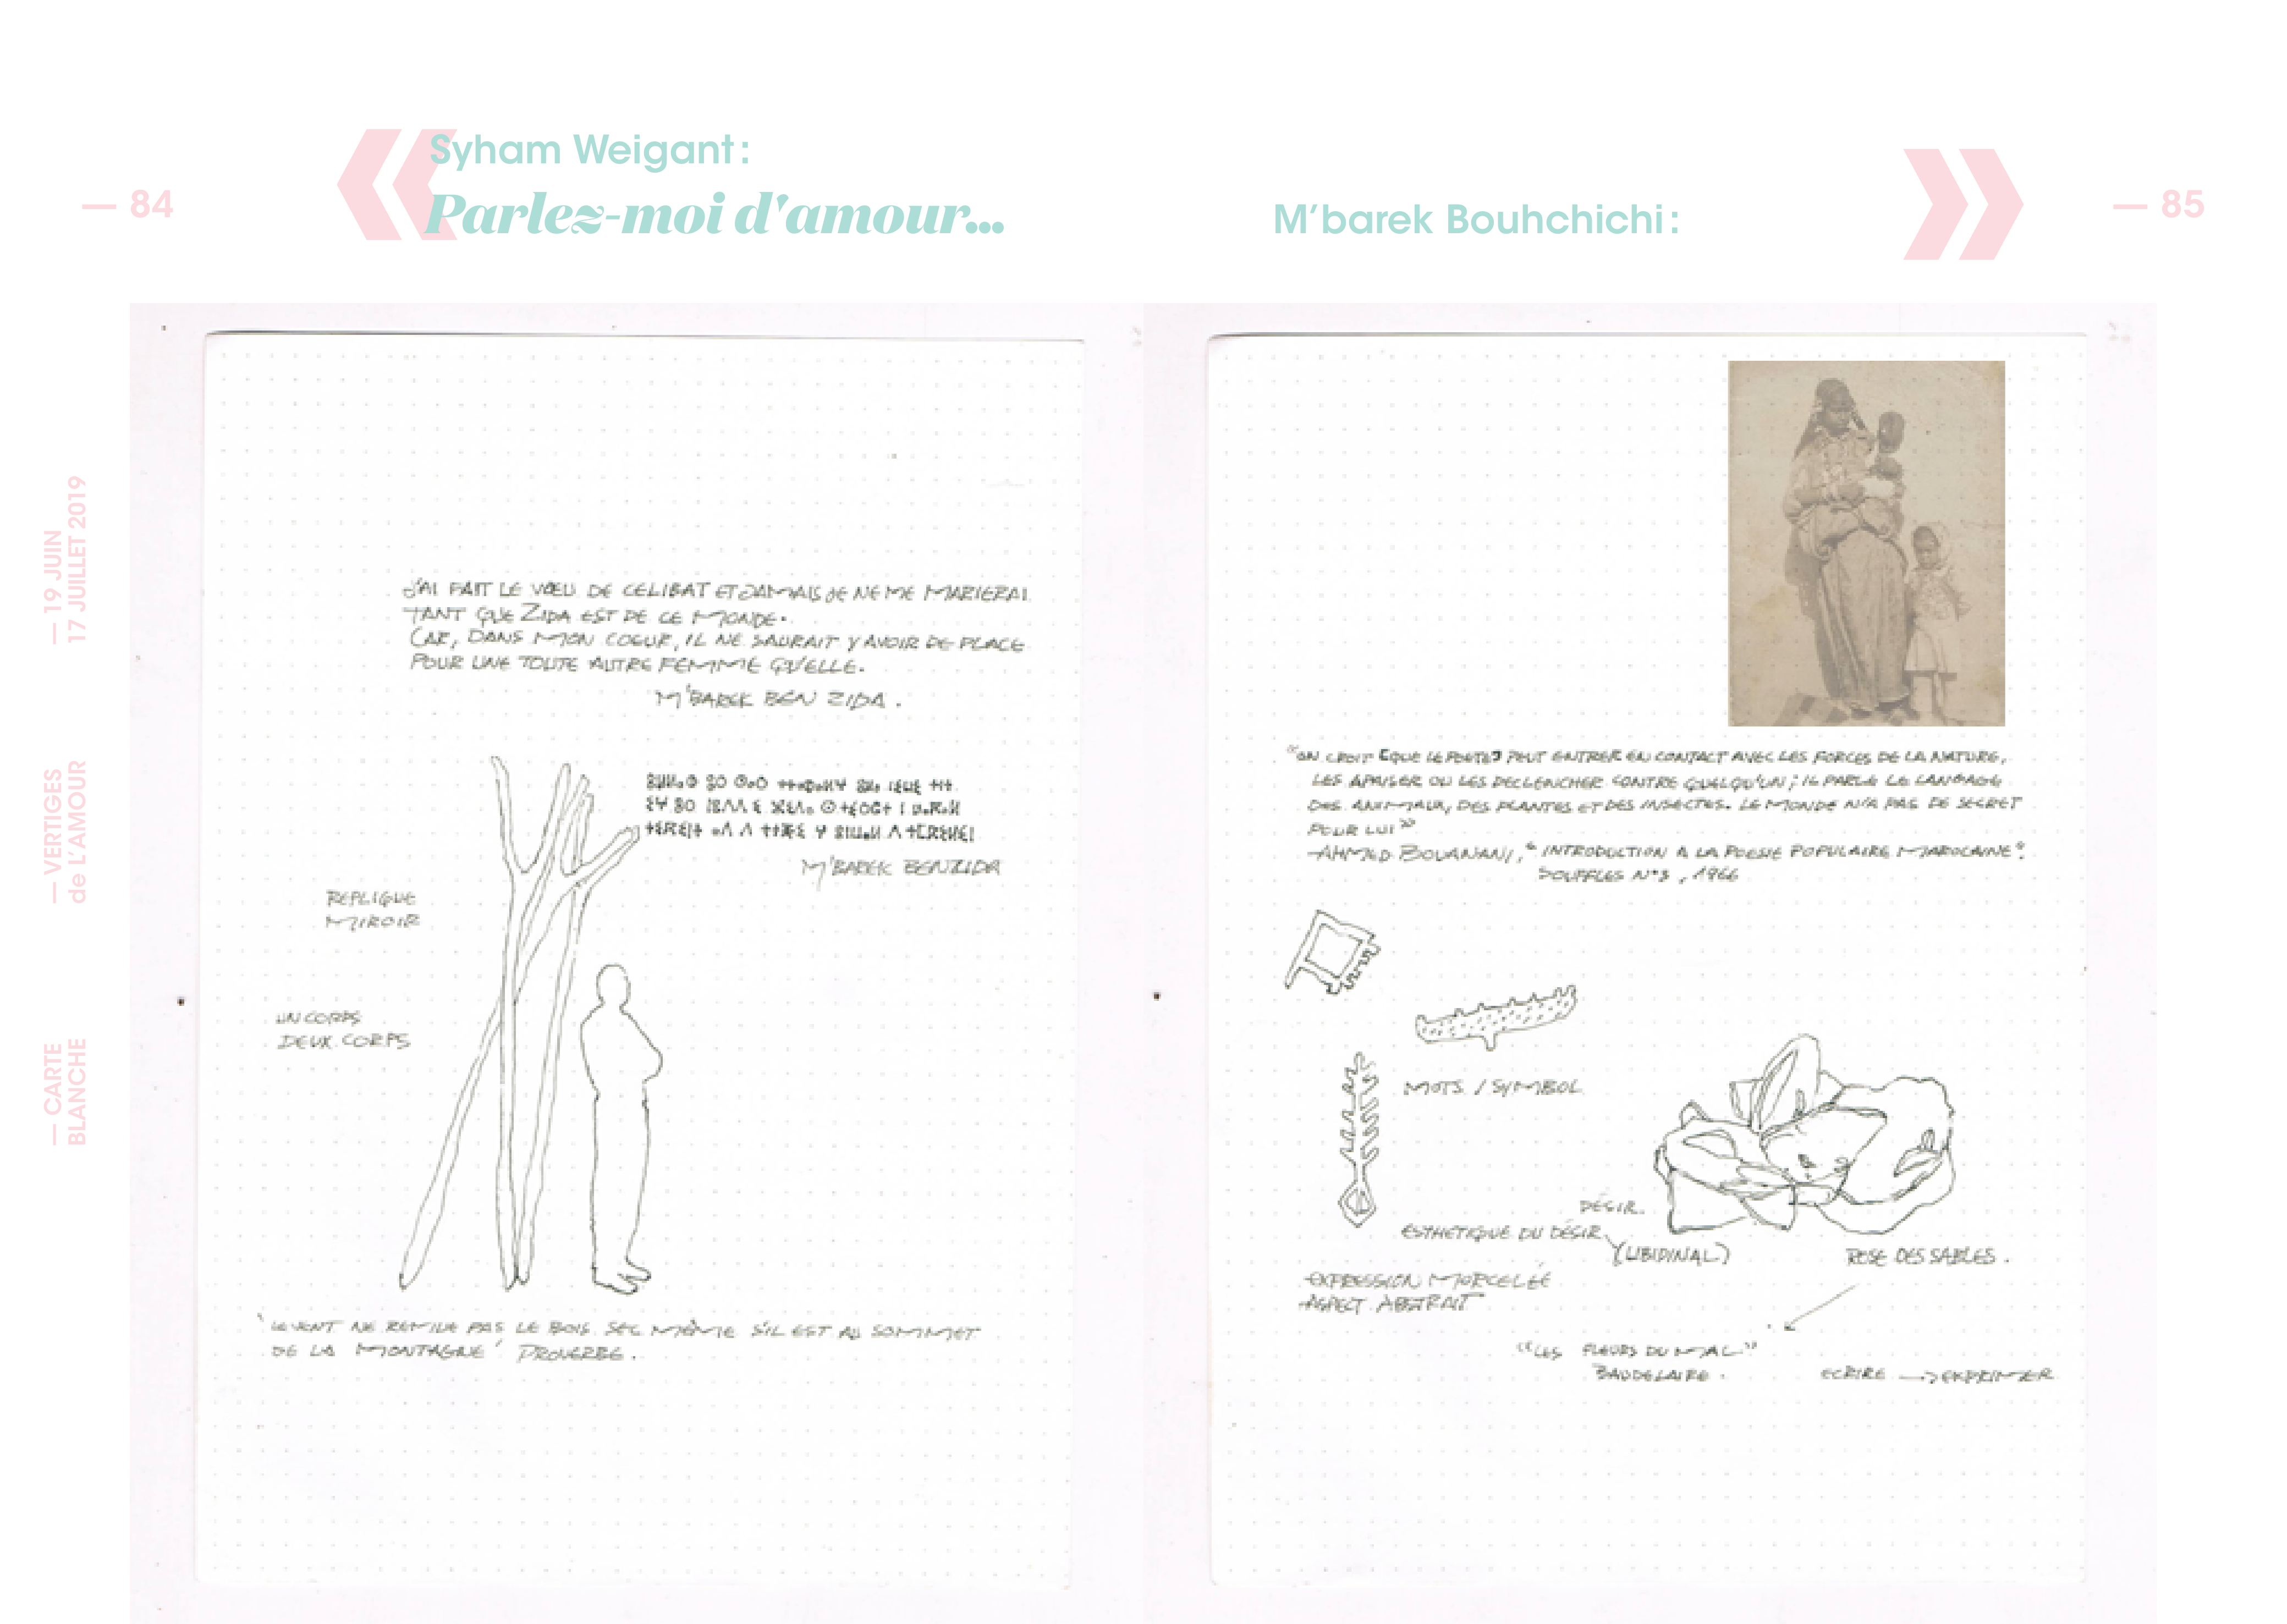 — 84
Syham Weigant :
Parlez-moi d'amour...
M'barek Bouhchichi :
— 85
— 19 JUIN
17 JUILLET 2019
— VERTIGES
de L'AMOUR
— CARTE
BLANCHE
J'AI FAIT LE VŒU DE CELIBAT ET JAMAIS JE NE ME MARIERAI
TANT QUE ZIDA EST DE CE MONDE.
CAR, DANS MON COEUR, IL NE SAURAIT Y AVOIR DE PLACE
POUR UNE TOUTE AUTRE FEMME QU'ELLE.
M'BAREK BEN ZIDA.
M'BAREK BENZIDA
REPLIQUE
MIROIR
UN CORPS
DEUX CORPS
"LE VENT NE REMUE PAS LE BOIS SEC MÊME S'IL EST AU SOMMET
DE LA MONTAGNE" PROVERBE.
"ON CROIT [QUE LE POETE] PEUT ENTRER EN CONTACT AVEC LES FORCES DE LA NATURE,
LES APAISER OU LES DECLENCHER CONTRE QUELQU'UN ; IL PARLE LE LANGAGE
DES ANIMAUX, DES PLANTES ET DES INSECTES. LE MONDE N'A PAS DE SECRET
POUR LUI"
AHMED BOUANANI, "INTRODUCTION A LA POESIE POPULAIRE MAROCAINE".
SOUFFLES N°3, 1966
MOTS / SYMBOL
DÉSIR.
ESTHETIQUE DU DÉSIR
(LIBIDINAL)
ROSE DES SABLES.
EXPRESSION MORCELÉE
ASPECT ABSTRAIT
"LES FLEURS DU MAL"
BAUDELAIRE.
ECRIRE → EXPRIMER